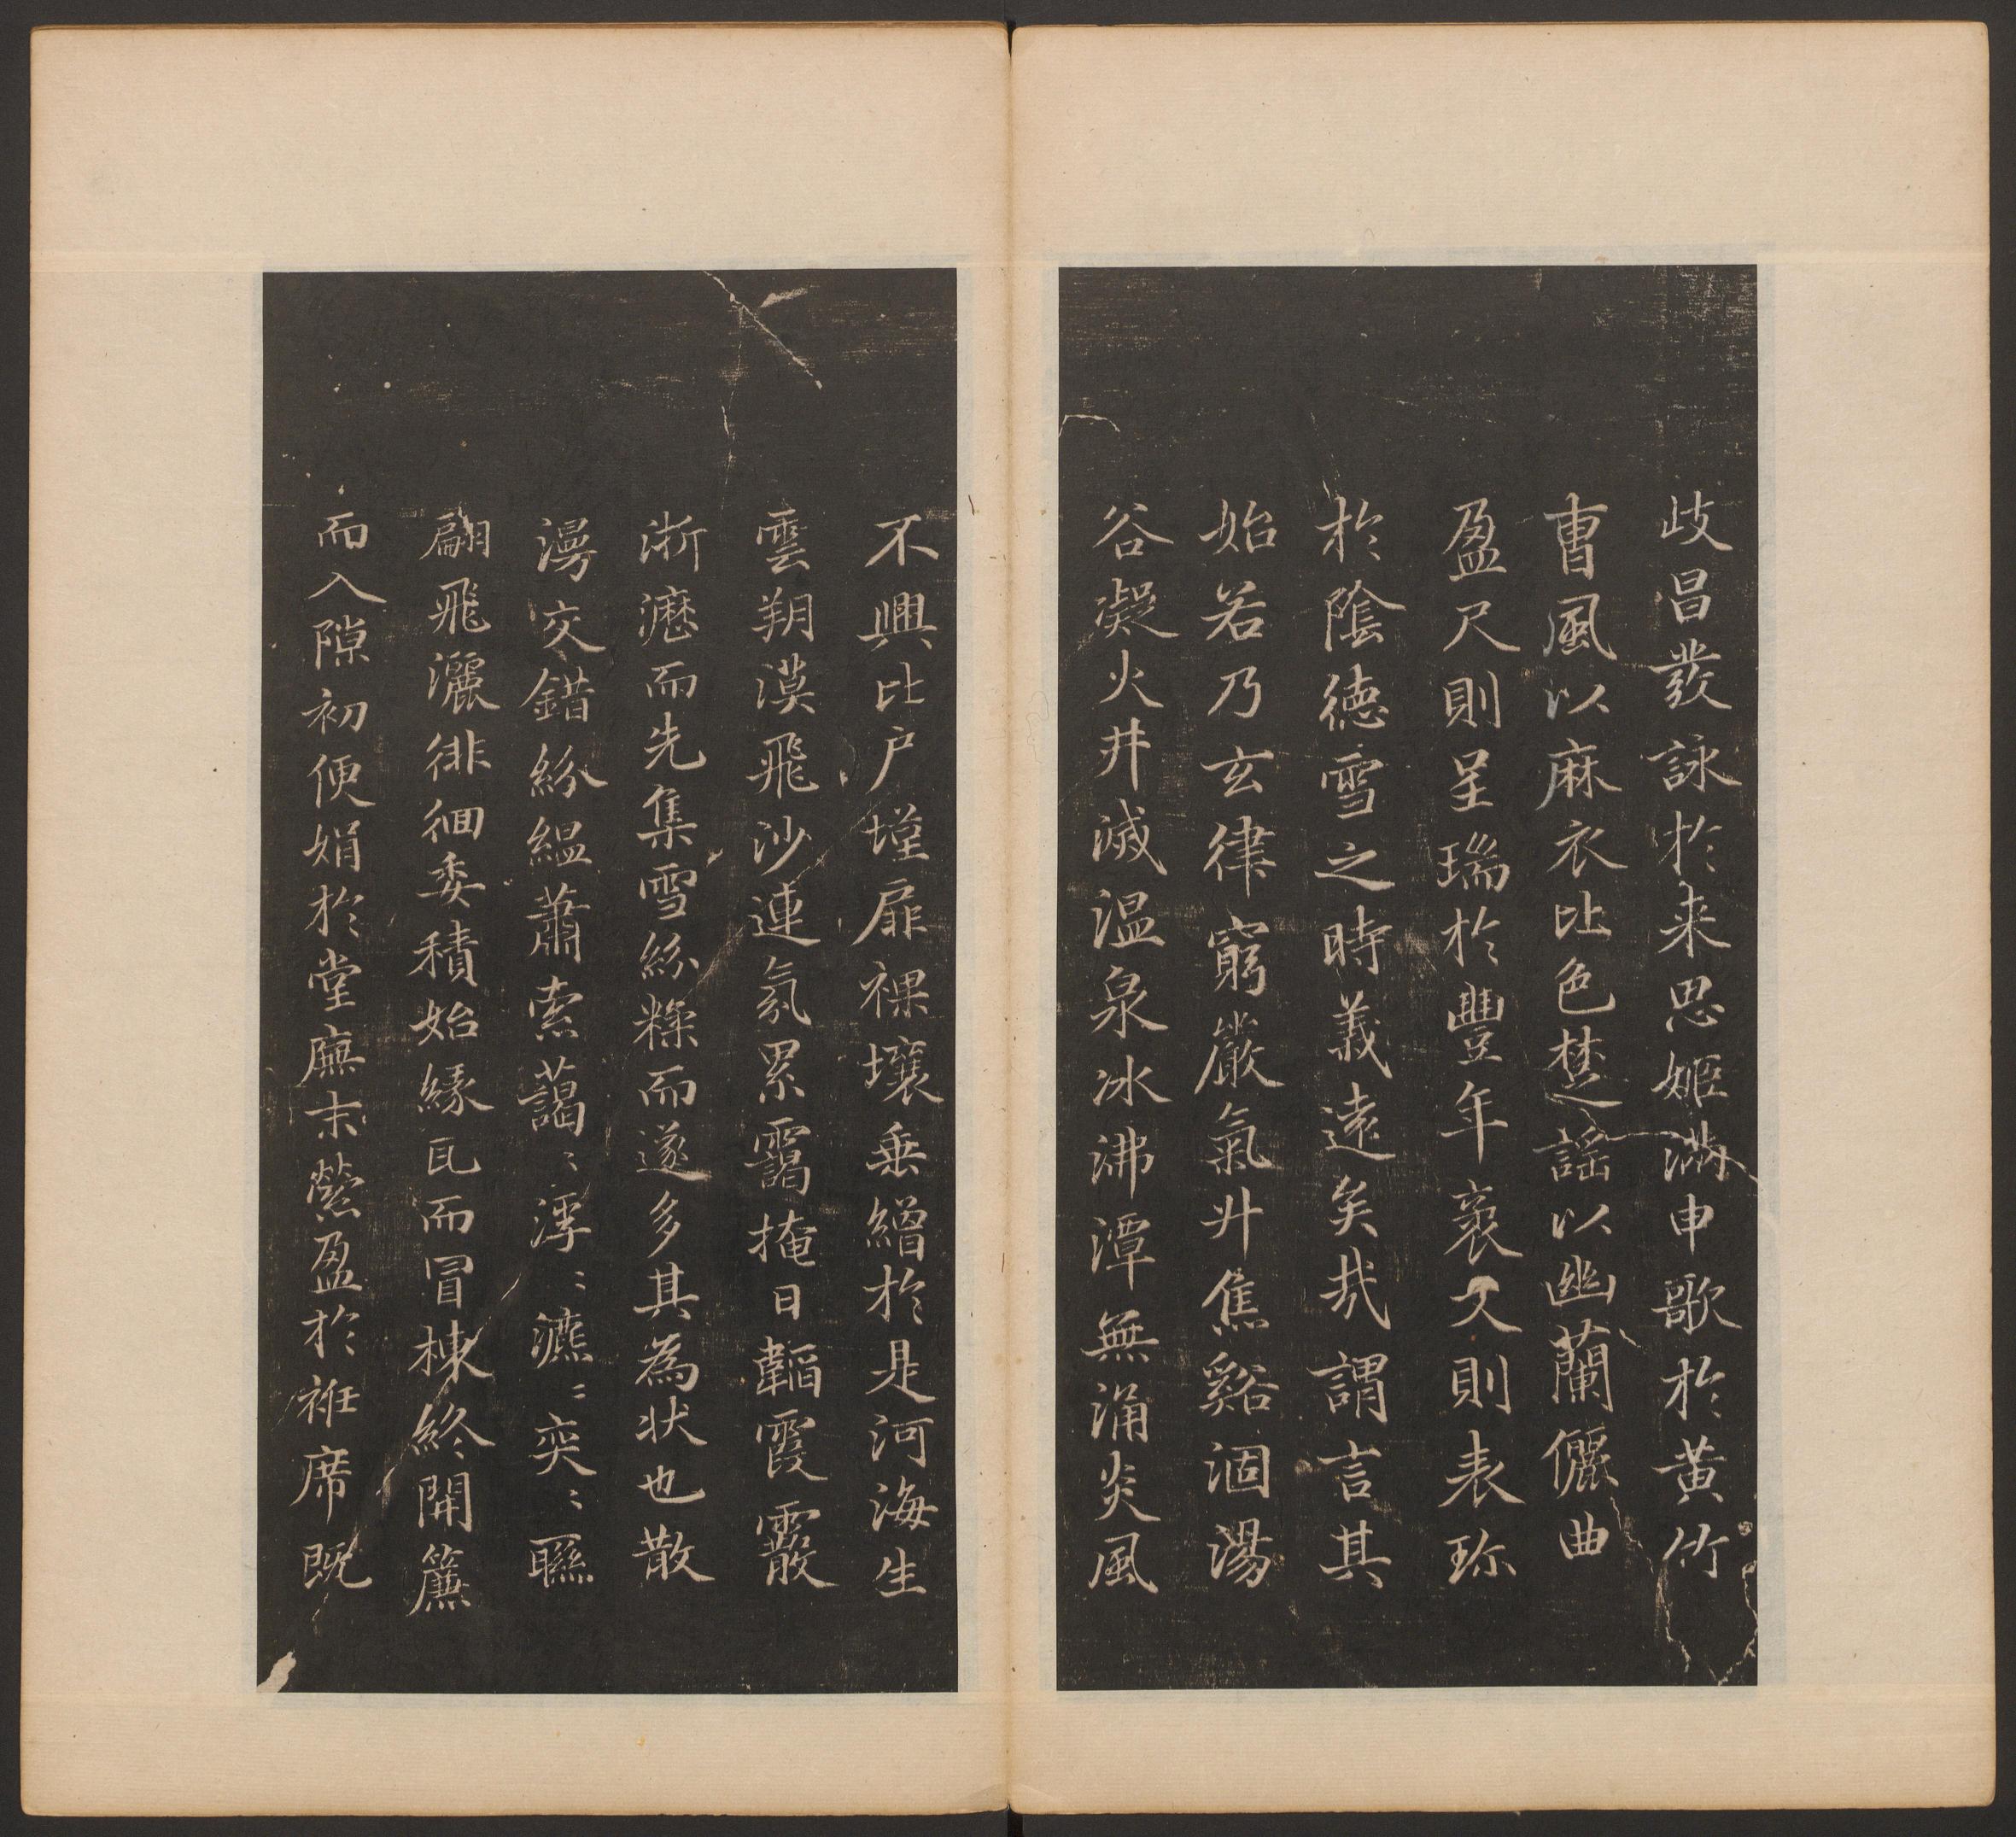 歧昌發詠於来思姬滿申歌於黃竹
曹風以麻衣比色楚謡以幽蘭儷曲
盈尺則呈瑞於豐年袤丈則表珎
於陰德雪之時義遠矣哉謂言其
始若乃玄律窮嚴氣升焦谿涸湯
谷凝火井滅温泉冰沸潭無涌炎風
不興比户墐扉裸壤垂繒於是河海生
雲朔漠飛沙連氛累靄掩日韜霞霰
淅瀝而先集雪紛糅而遂多其為状也散
漫交錯紛緼蕭索藹〻浮〻瀌〻奕〻聮
翩飛灑徘徊委積始縁瓦而冒棟終開簾
而入隙初便娟於堂廡末縈盈於帷席既